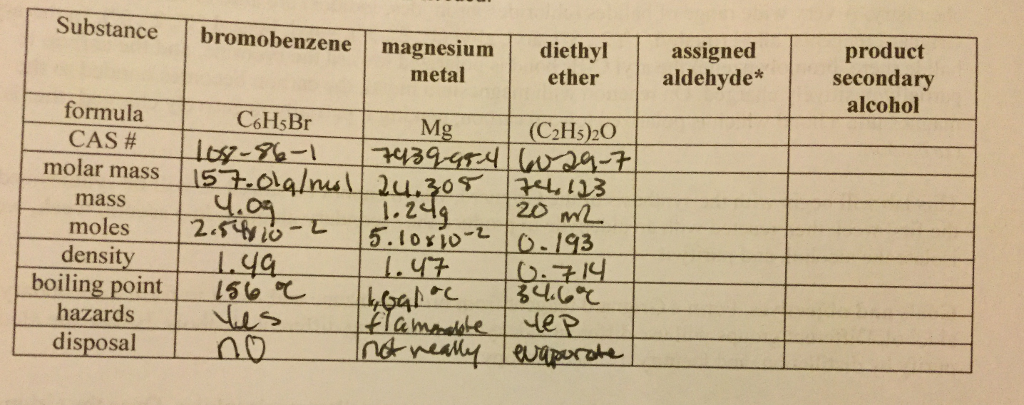 Substance bromobenzene magnesium metal diethyl ether assigned aldehyde* product secondary alcohol
formula C6H5Br Mg (C2H5)2O
CAS # 108-86-1 7439-95-4 60-29-7
molar mass 157.01g/mol 24.305 74.123
mass 4.0g 1.24g 20 mL
moles 2.54x10-2 5.10x10-2 0.193
density 1.49 1.47 0.714
boiling point 156 °C °C 34.6°C
hazards Yes flammable yep
disposal no not really evaporate